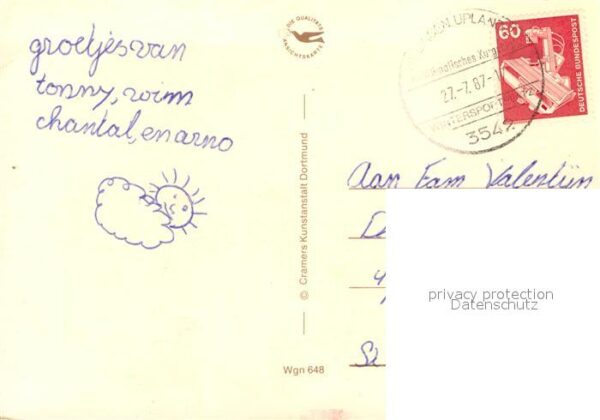 groetjes van
tonny, wim
chantal, en arno
DIE QUALITÄTS
ANSICHTSKARTE
© Cramers Kunstanstalt Dortmund
Wgn 648
UPLAND
27.-7.87-1
WINTERSPORT
3542
60
DEUTSCHE BUNDESPOST
Aan Fam Valentijn
privacy protection
Datenschutz